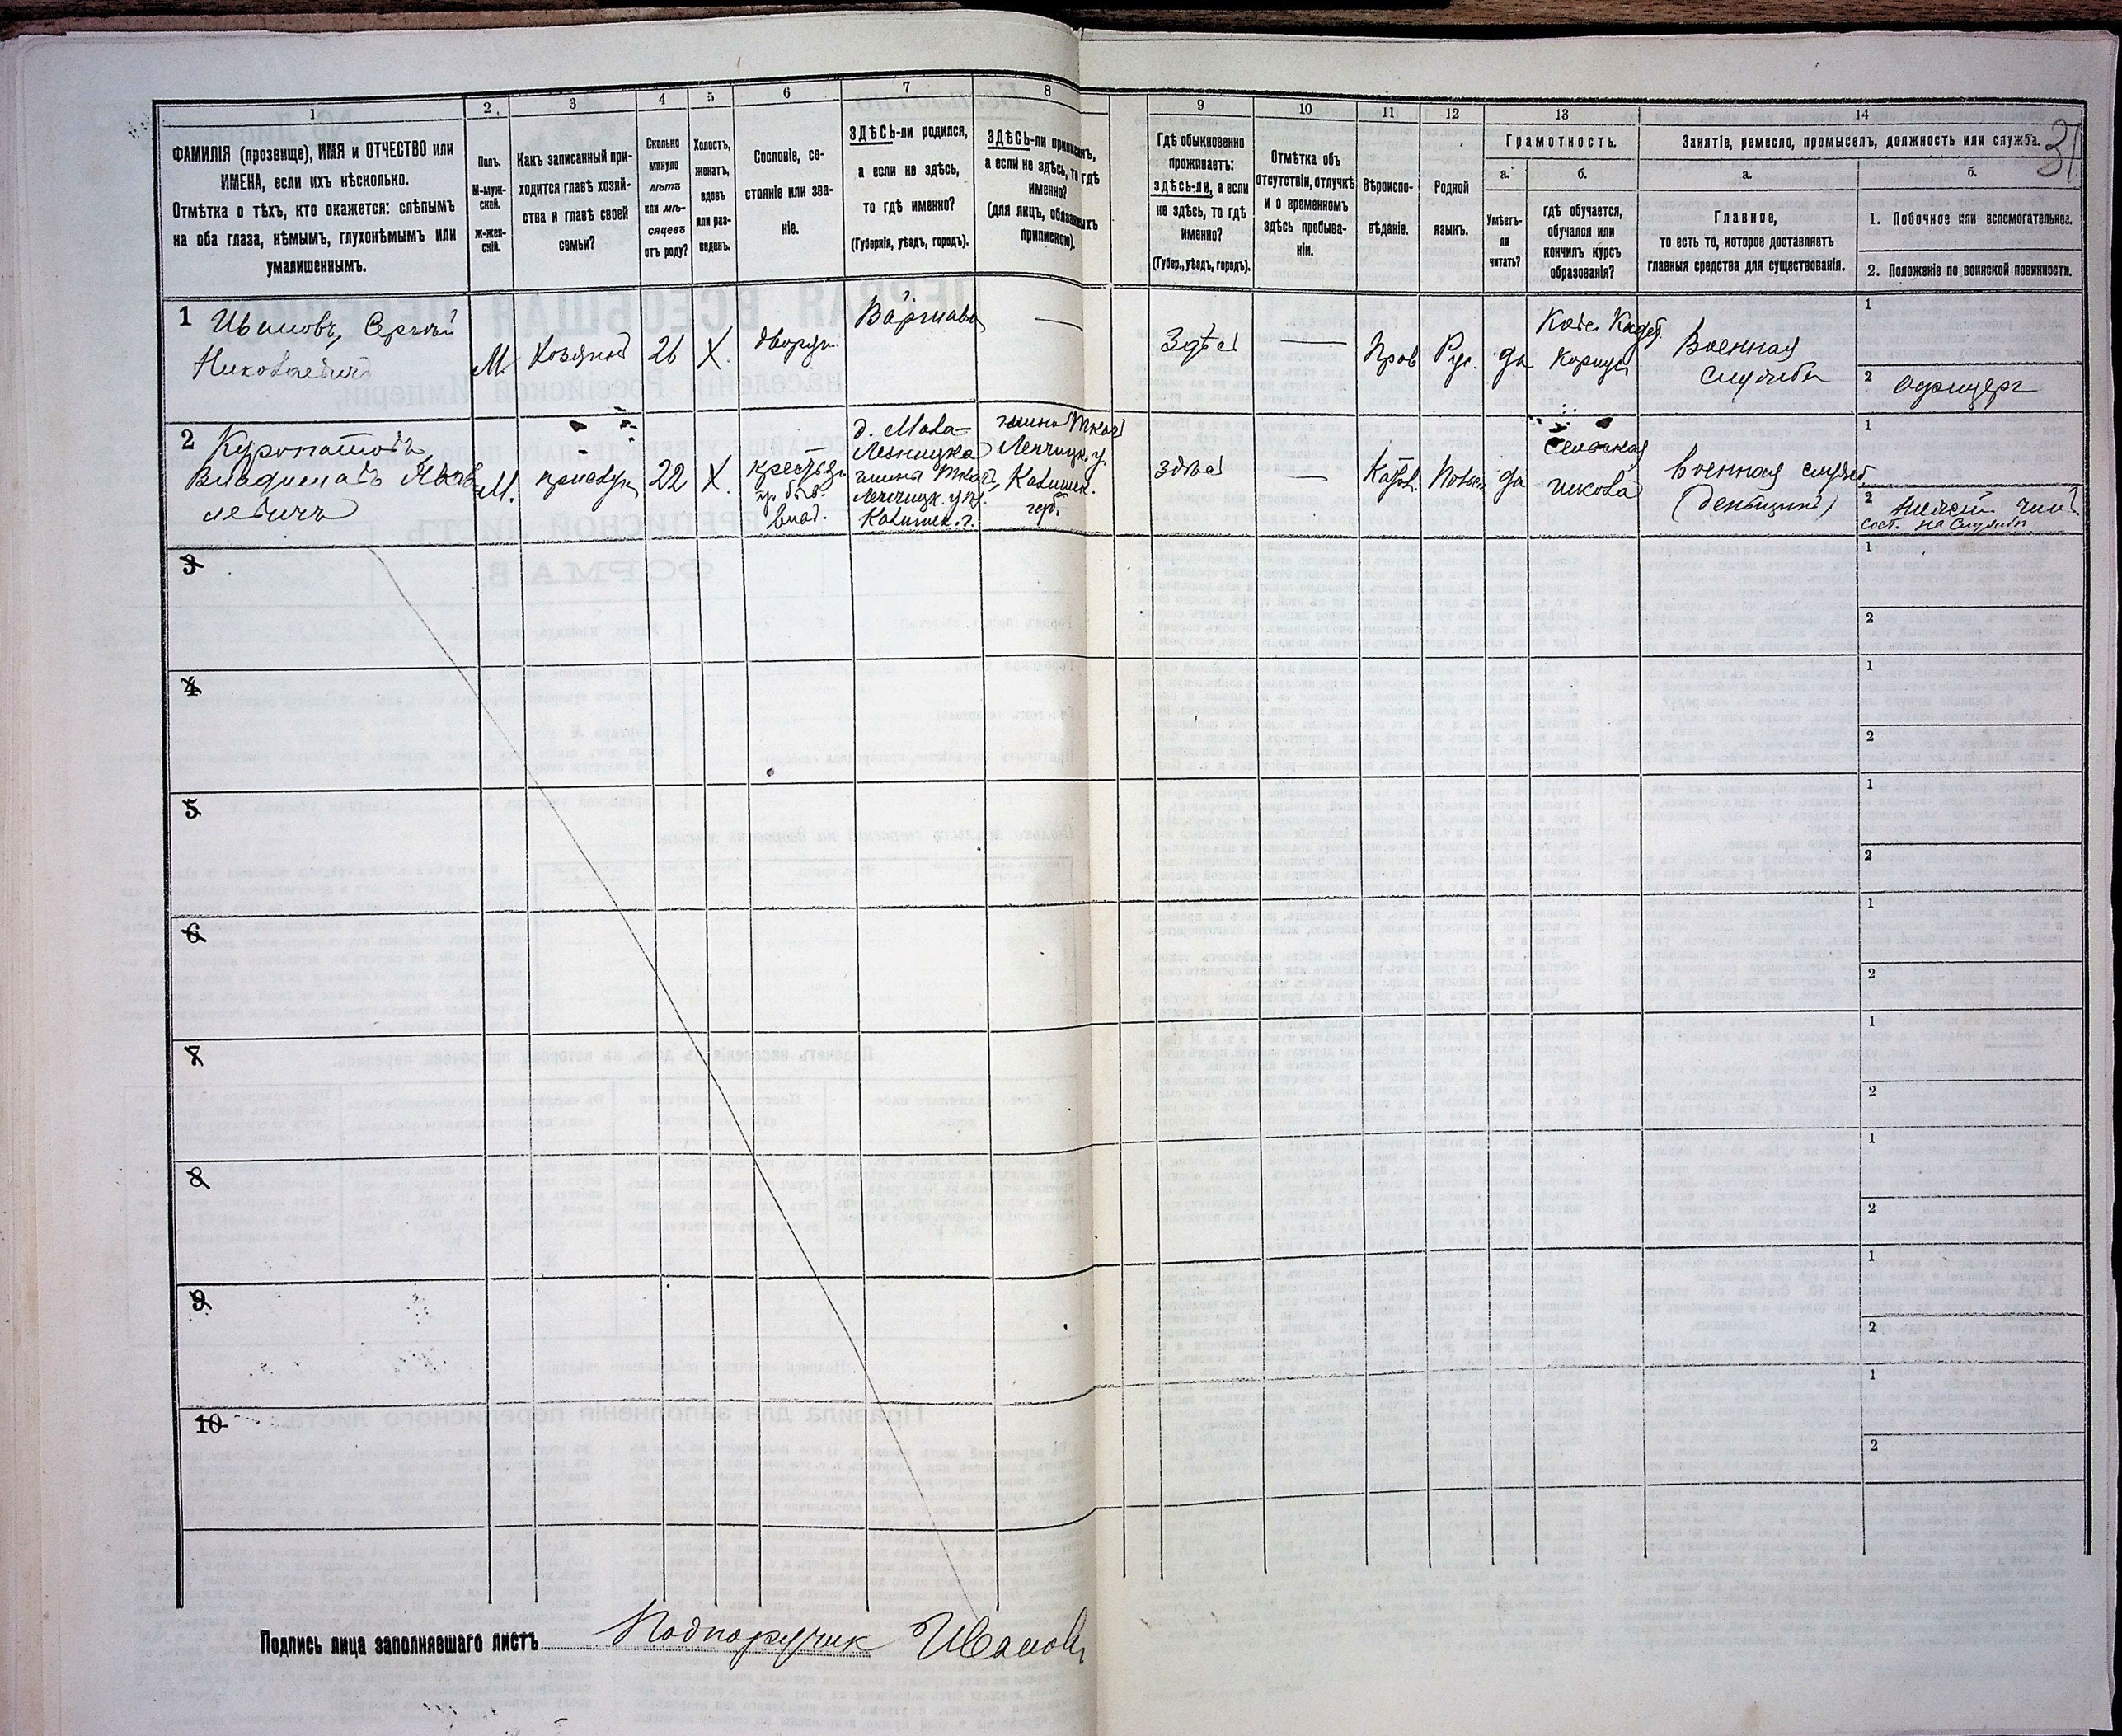 1
2.
3
4
5
6
7
8
9
10
11
12
13
14
31
ФАМИЛІЯ (прозвище), ИМЯ и ОТЧЕСТВО или
ИМЕНА, если ихъ нѣсколько.
Отмѣтка о тѣхъ, кто окажется: слѣпымъ
на оба глаза, нѣмымъ, глухонѣмымъ или
умалишеннымъ.
Полъ.
М-муж-
ской.
ж-жен-
скій.
Какъ записанный при-
ходится главѣ хозяй-
ства и главѣ своей
семьи?
Сколько
минуло
лѣтъ
или мѣ-
сяцевъ
отъ роду?
Холостъ,
женатъ,
вдовъ
или раз-
веденъ.
Сословіе, со-
стояніе или зва-
ніе.
ЗДѢСЬ-ли родился,
а если не здѣсь,
то гдѣ именно?
(Губернія, уѣздъ, городъ).
ЗДѢСЬ-ли приписанъ,
а если не здѣсь, то гдѣ
именно?
(для лицъ, обязанныхъ
припискою).
Гдѣ обыкновенно
проживаетъ:
здѣсь-ли, а если
не здѣсь, то гдѣ
именно?
(Губер., уѣздъ, городъ).
Отмѣтка объ
отсутствіи, отлучкѣ
и о временномъ
здѣсь пребыва-
ніи.
Вѣроиспо-
вѣданіе.
Родной
языкъ.
Грамотность.
а.
Умѣетъ-
ли
читать?
б.
гдѣ обучается,
обучался или
кончилъ курсъ
образованія?
Занятіе, ремесло, промыселъ, должность или служба.
а.
Главное,
то есть то, которое доставляетъ
главныя средства для существованія.
б.
1. Побочное или вспомогательное.
2. Положеніе по воинской повинности.
1 Ивановъ, Сергѣй
Николаевичъ
М
Хозяинъ
26
Х.
дворян.
Варшава
—
Здѣсь
—
Прав
Рус.
да
Кадет.
корпусъ
Военная
служба
1
2 офицеръ
2
М.
прислуга
22
Х.
крестьян.
д.
Калишск. г.
Калишск.
губ.
здѣсь
—
Катол.
Польск
да
Сельская
школа
Военная служб.
(деньщикъ)
1
2 нижній чинъ
сост. на службѣ
3
1
2
4
1
2
5
1
2
6
1
2
7
1
2
8
1
2
9
1
2
10
1
2
Подпись лица заполнявшаго листъ Подпоручикъ Ивановъ